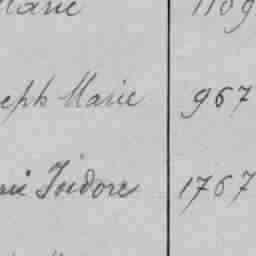 Marie 1109
eph Marie 967
Isidore 1767